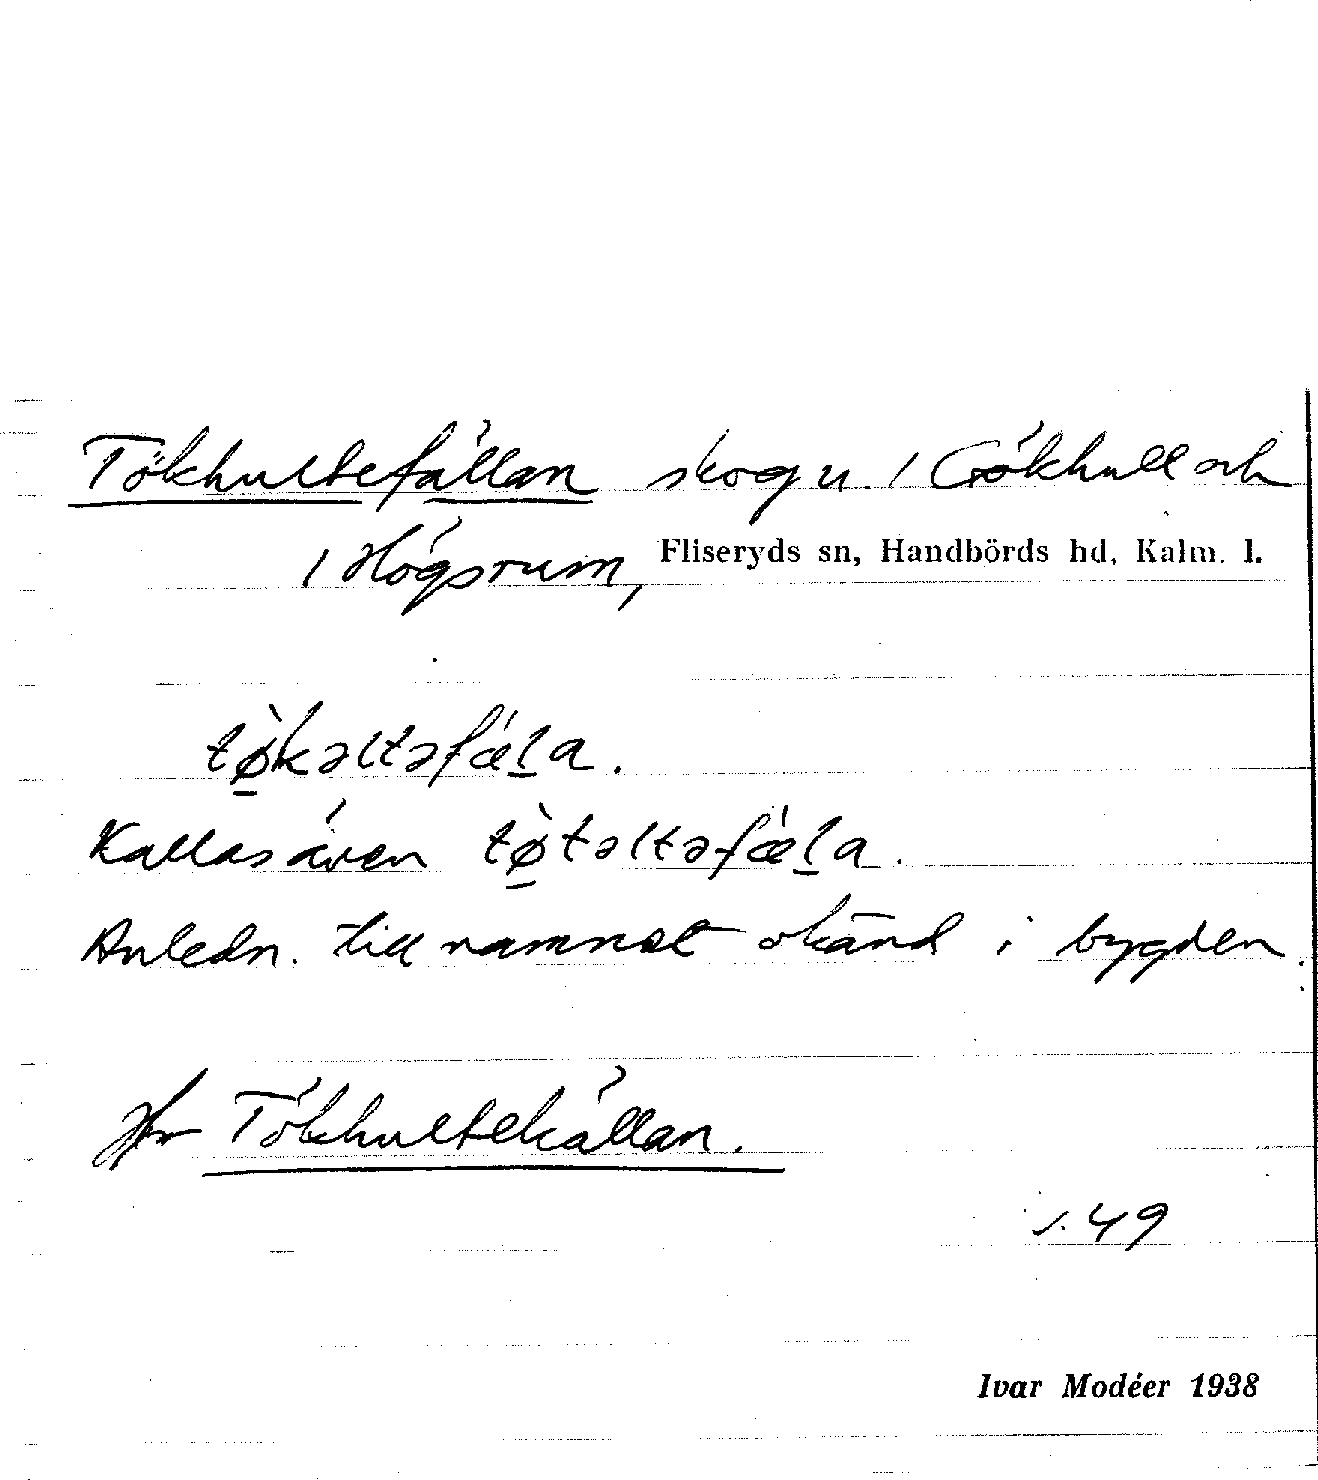 Tökhultefällan skog u. 1 Gökhult och
1 Högsrum, Fliseryds sn, Handbörds hd, Kalm. l.
tø̀kəltəfǽla.
Kallas även tø̀təltəfǽla.
Anledn. till namnet okänd i bygden.
Jfr Tökhultekällan.
s. 49
Ivar Modéer 1938